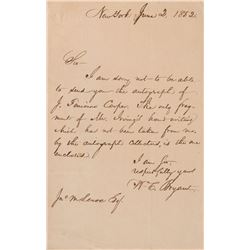 New York June 2, 1852.
Sir—
I am sorry not to be able
to send you the autograph of
J. Fenimore Cooper. The only frag-
ment of Mr. Irving's hand writing
which has not been taken from me
by the autograph collectors, is the one
enclosed.
I am Sir,
respectfully yours
W. C. Bryant.
Esq.